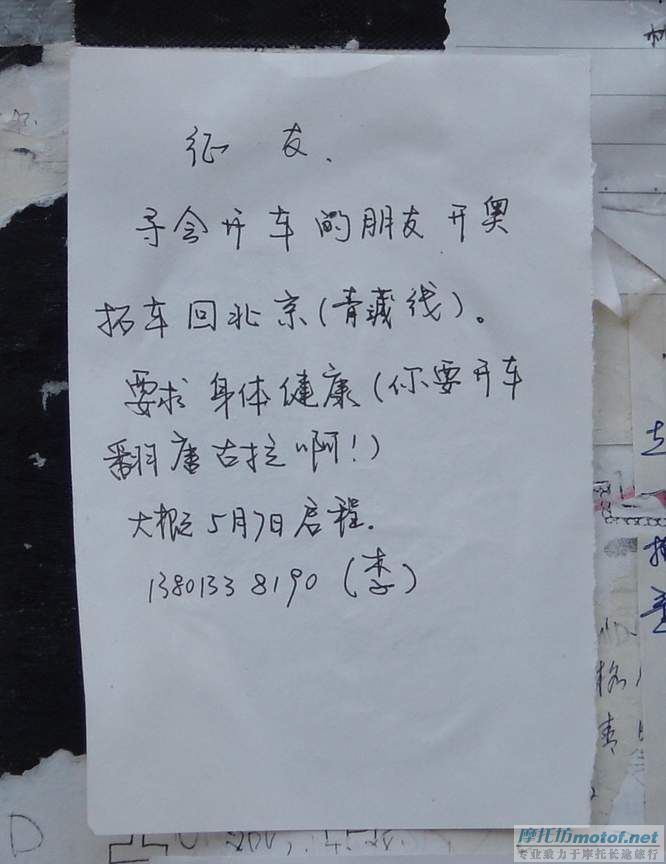 征 友、
寻会开车的朋友开奥
拓车回北京(青藏线)。
要求身体健康(你要开车
翻唐古拉啊!)
大概5月7日启程.
1380133 8190 (李)
摩托坊motof.net
专业致力于摩托长途旅行